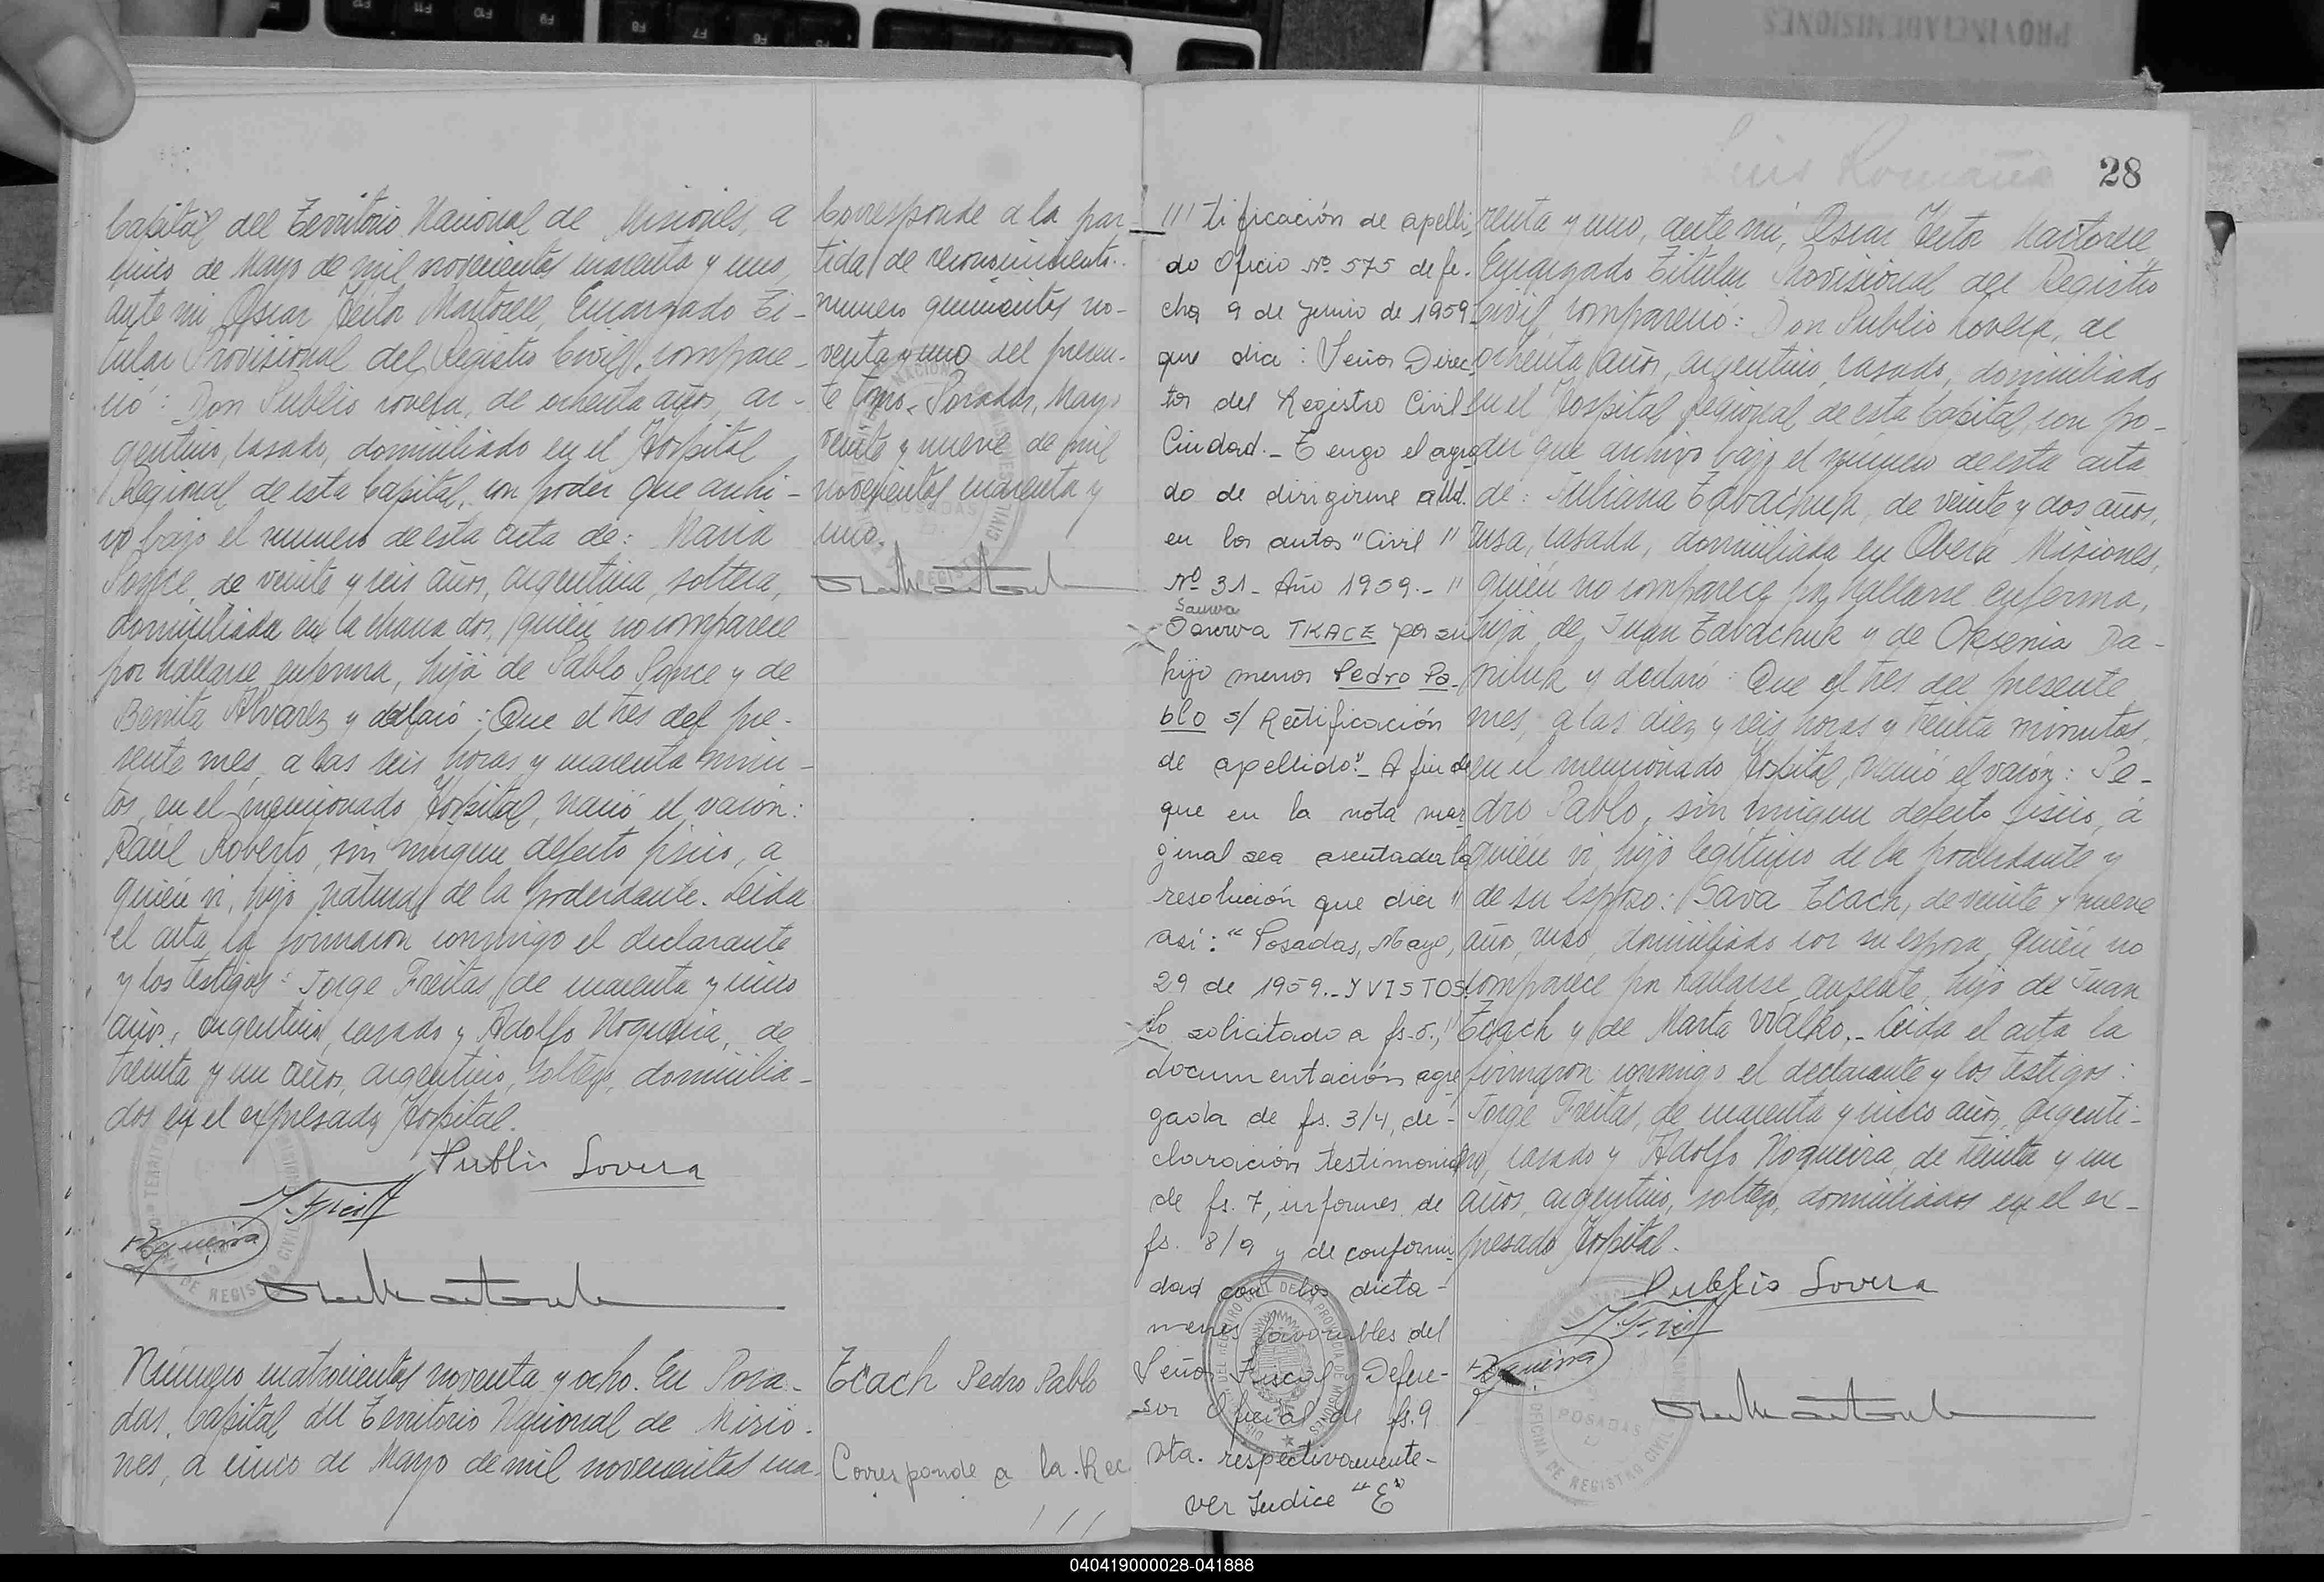 PROVINCIA DE MISIONES
28
Capital del Territorio Nacional de Misiones, a
cinco de Mayo de mil novecientos cuarenta y uno,
ante mi, Oscar Héctor Martorell, Encargado Ti-
tular Provisional del Registro Civil, compare-
ció: Don Publio Lovera, de ochenta años, ar-
gentino, casado, domiciliado en el Hospital
Regional de esta Capital, con poder que archi-
vo bajo el numero de esta acta de: Maria
de veinte y seis años, argentina, soltera,
domiciliada en la chacra dos, quién no comparece
por hallarse enferma, hija de Pablo y de
Benita Alvarez y declaró: Que el tres del pre-
sente mes, a las seis horas y cuarenta minu-
tos, en el mencionado Hospital, nació el varón:
Raúl Roberto, sin ningun defecto fisico, a
quién vi, hijo natural de la poderdante. Leida
el acta la firmaron conmigo el declarante
y los testigos: Jorge Freitas, de cuarenta y cinco
años, argentino, casado y Adolfo Nogueira, de
treinta y un años, argentino, soltero, domicilia-
dos en el expresado Hospital.
Publio Lovera
J. Freit
Nogueira
Corresponde a la par-
tida de reconocimiento
numero quinientos no-
venta y uno del presen-
te tomo. Posadas, Mayo
veinte y nueve de mil
novecientos cuarenta y
uno.
Número cuatrocientos noventa y ocho. En Posa-
das, Capital del Territorio Nacional de Misio-
nes, a cinco de Mayo de mil novecientos cua-
Tcach Pedro Pablo
Corresponde a la Rec
///
/// tificación de apelli-
do Oficio Nº 575 de fe-
cha 9 de Junio de 1959
que dice: Señor Direc-
tor del Registro Civil
Ciudad._ Tengo el agra-
do de dirigirme a Ud.
en los autos "Civil"
Nº 31 - Año 1959.- "
Sawa
TKACZ por su
hijo menor Pedro Pa-
blo s/ Rectificación
de apellido"._ A fin de
que en la nota mar-
ginal sea asentada la
resolución que dice
así: "Posadas, Mayo,
29 de 1959._ Y VISTOS:
Lo solicitado a fs. 5.,
documentación agre-
gada de fs. 3/4, de-
claración testimonial
de fs. 7, informes de
fs. 8/9 y de conformi-
dad con los dicta-
menes favorables del
Señor Fiscal y Defen-
sor Oficial de fs. 9
vta. respectivamente-
ver Indice "E"
renta y uno, ante mi, Oscar Héctor Martorell,
Encargado Titular Provisional del Registro
Civil, compareció: Don Publio Lovera, de
ochenta años, argentino, casado, domiciliado
en el Hospital Regional de esta Capital, con po-
der que archivo bajo el número de esta acta
de: Juliana Zavachuk, de veinte y dos años,
rusa, casada, domiciliada en Oberá Misiones,
quién no comparece por hallarse enferma,
hija de Juan Zavachuk y de Oksenia Da-
niluk y declaró: Que el tres del presente
mes, a las diez y seis horas y treinta minutos,
en el mencionado Hospital, nació el varón: Pe-
dro Pablo, sin ningun defecto fisico, a
quién vi, hijo legitimo de la poderdante y
de su esposo: Sava Tcach, de veinte y nueve
años, ruso, domiciliado con su esposa, quién no
comparece por hallarse ausente, hijo de Juan
Tcach y de Marta Walko._ Leida el acta la
firmaron conmigo el declarante y los testigos:
Jorge Freitas, de cuarenta y cinco años, argenti-
no, casado y Adolfo Nogueira, de treinta y un
años, argentino, soltero, domiciliados en el ex-
presado Hospital.
Publio Lovera
J. Freit
Nogueira
POSADAS
OFICINA DE REGISTRO CIVIL
040419000028-041888